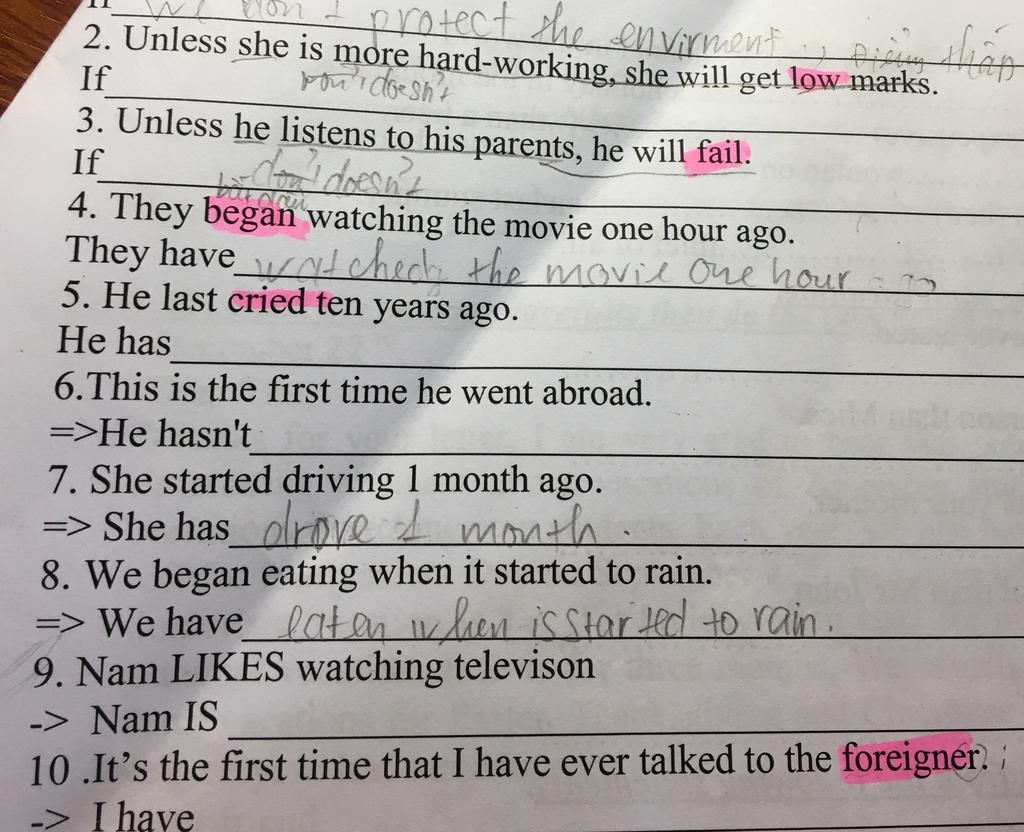 If we don't protect the envirment,
2. Unless she is more hard-working, she will get low marks.
thấp
If don't doesn't
3. Unless he listens to his parents, he will fail.
If don't doesn't
bắt đầu
4. They began watching the movie one hour ago.
They have watched the movie one hour ago
5. He last cried ten years ago.
He has
6.This is the first time he went abroad.
=>He hasn't
7. She started driving 1 month ago.
=> She has drove 1 month.
8. We began eating when it started to rain.
=> We have eaten when is started to rain.
9. Nam LIKES watching televison
-> Nam IS
10 .It's the first time that I have ever talked to the foreigner.
-> I have